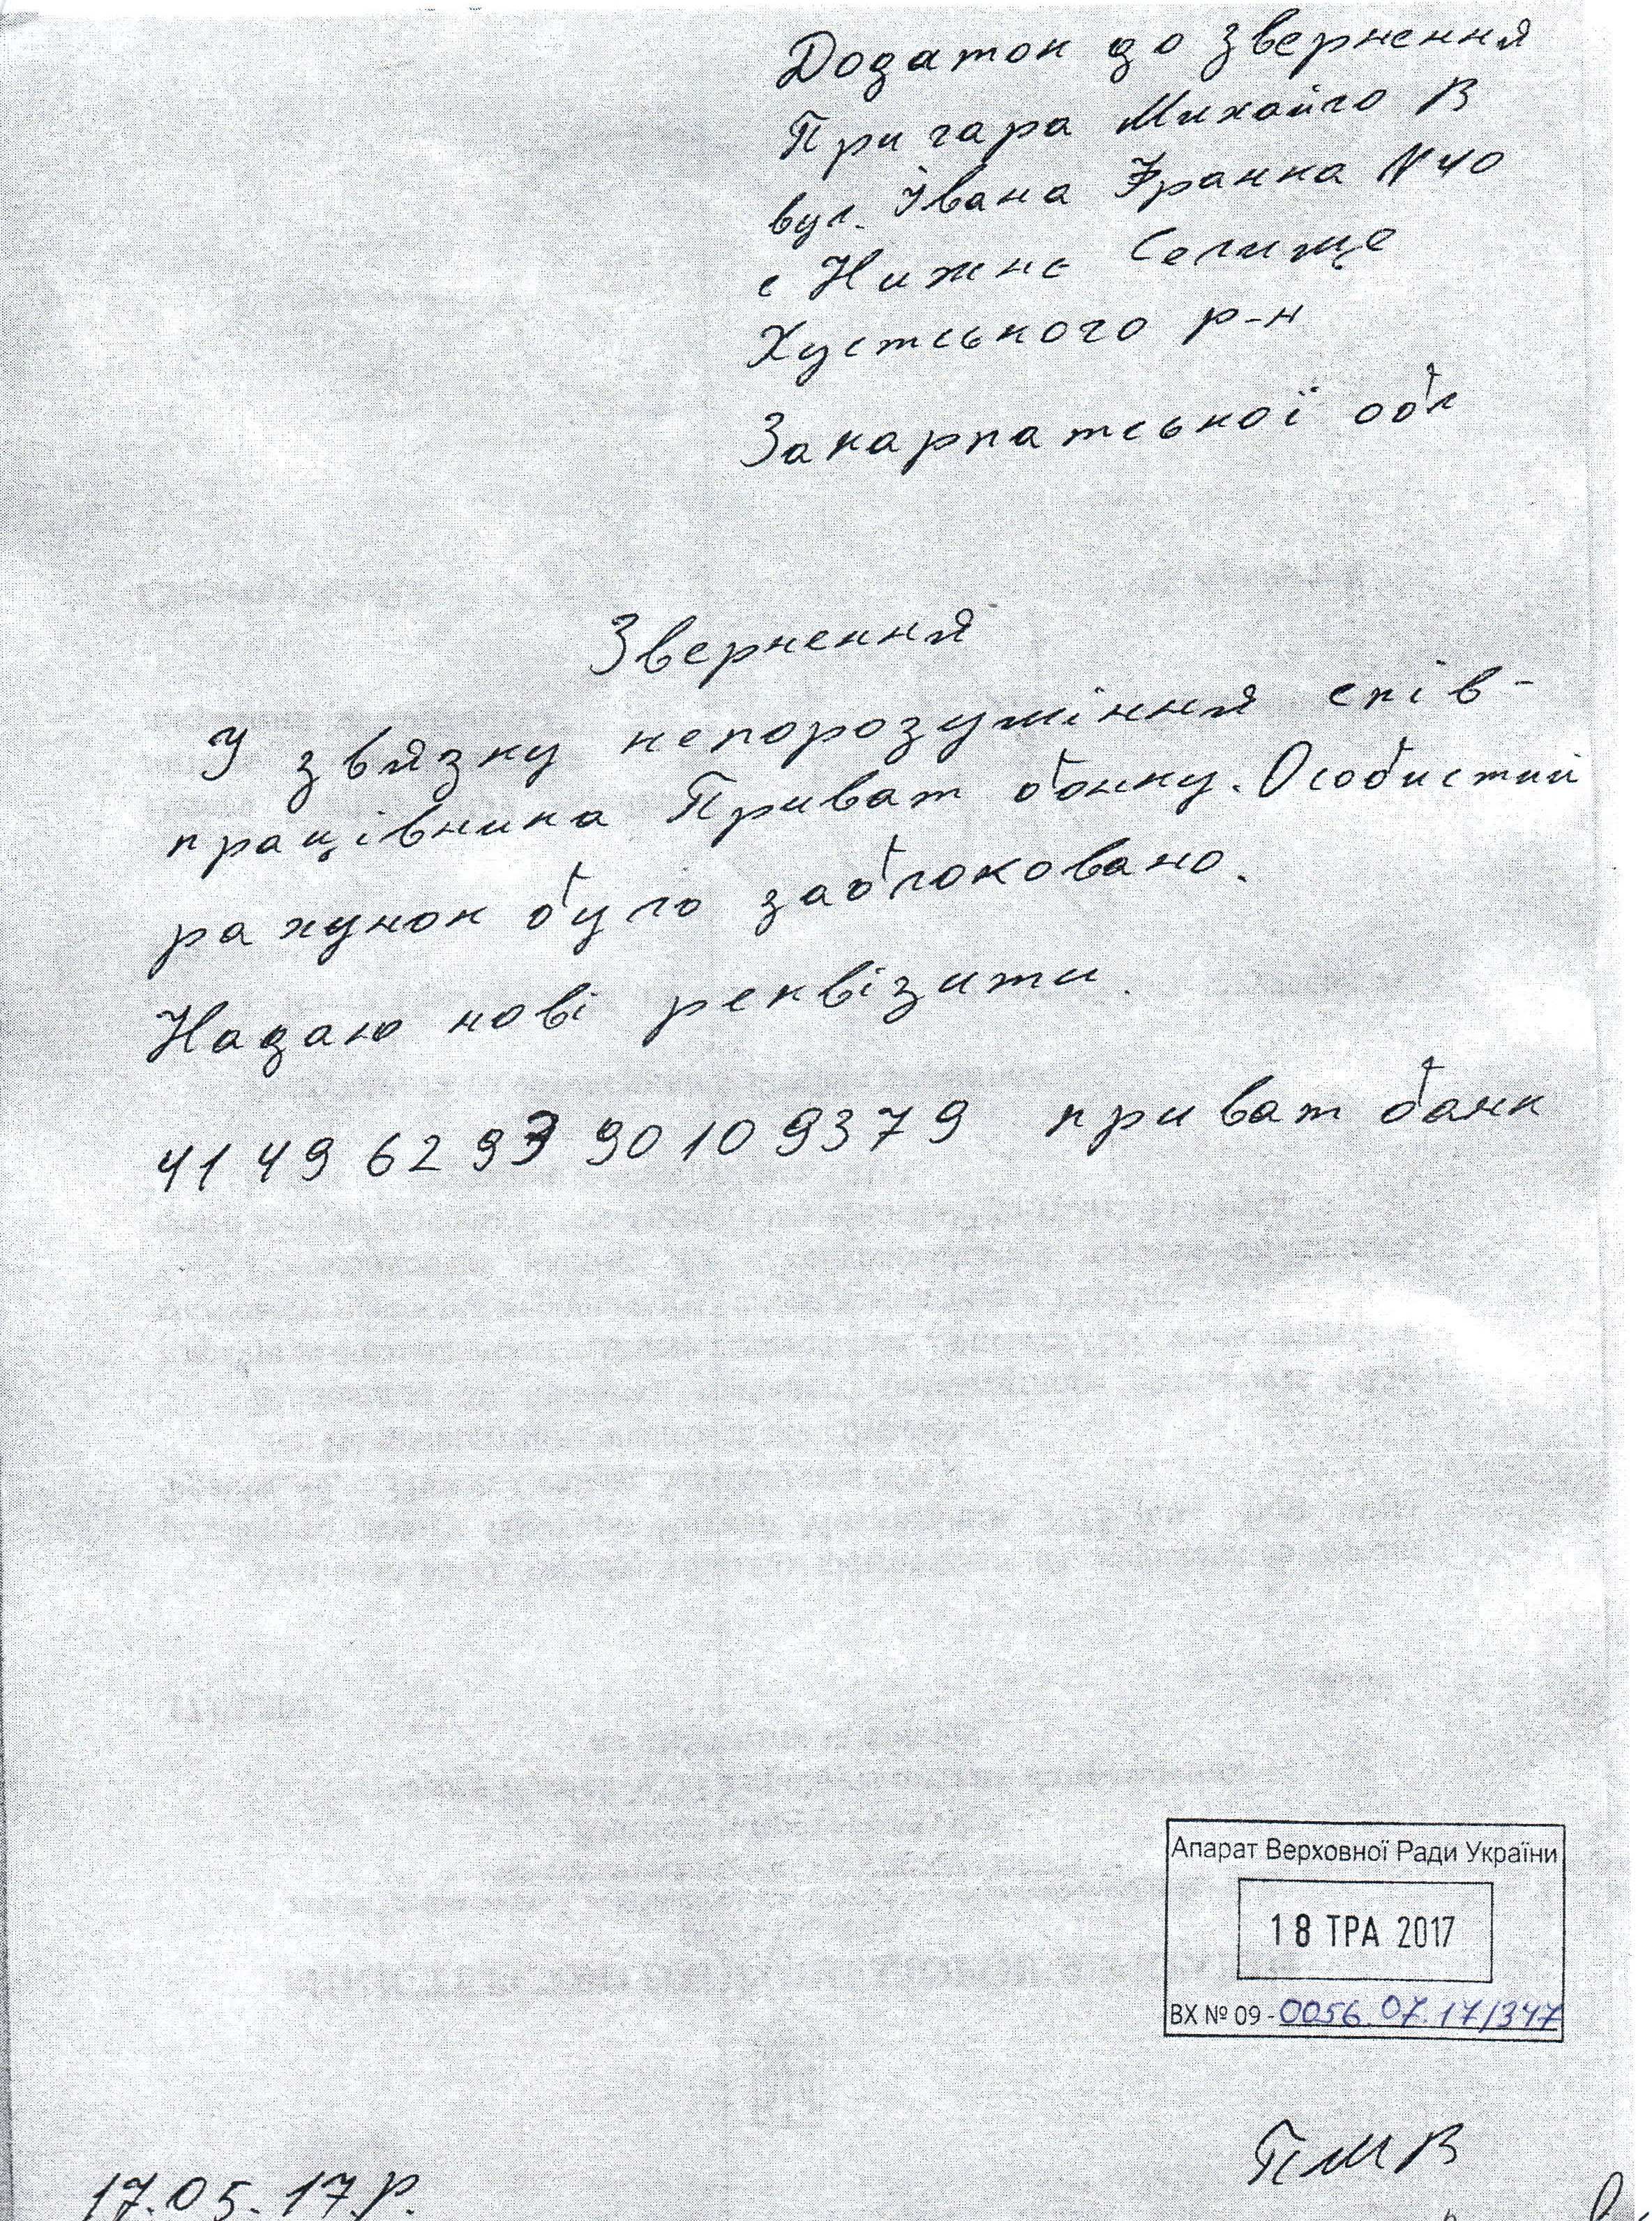 Додаток до звернення
Пригара Михайло В
вул. Івана Франка N 40
с Нижнє Селище
Хустського р-н
Закарпатської обл
Звернення
У звязку непорозуміння спів-
працівника Приват банку. Особистий
рахунок було заблоковано.
Надаю нові реквізити.
4149 6293 9010 9379 приват банк
Апарат Верховної Ради України
18 ТРА 2017
ВХ № 09 - 0056.07.17/347
ПМВ
17.05.17р.